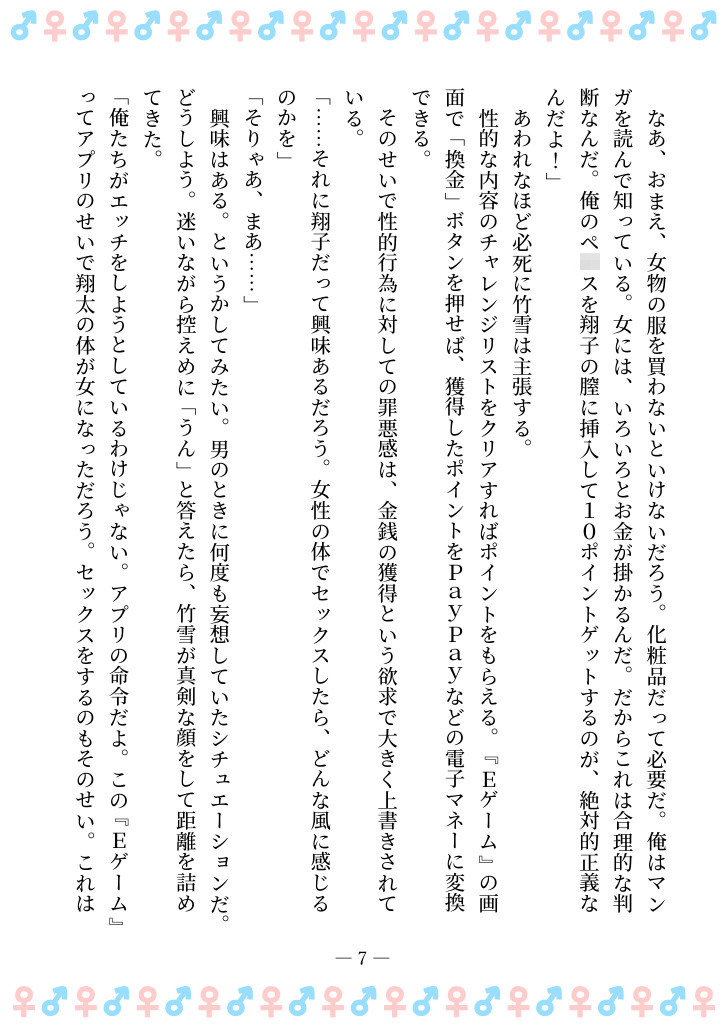 なあ、おまえ、女物の服を買わないといけないだろう。化粧品だって必要だ。俺はマン
ガを読んで知っている。女には、いろいろとお金が掛かるんだ。だからこれは合理的な判
断なんだ。俺のペ スを翔子の膣に挿入して１０ポイントゲットするのが、絶対的正義な
んだよ！」
あわれなほど必死に竹雪は主張する。
性的な内容のチャレンジリストをクリアすればポイントをもらえる。『Ｅゲーム』の画
面で「換金」ボタンを押せば、獲得したポイントをＰａｙＰａｙなどの電子マネーに変換
できる。
そのせいで性的行為に対しての罪悪感は、金銭の獲得という欲求で大きく上書きされて
いる。
「……それに翔子だって興味あるだろう。女性の体でセックスしたら、どんな風に感じる
のかを」
「そりゃあ、まあ……」
興味はある。というかしてみたい。男のときに何度も妄想していたシチュエーションだ。
どうしよう。迷いながら控えめに「うん」と答えたら、竹雪が真剣な顔をして距離を詰め
てきた。
「俺たちがエッチをしようとしているわけじゃない。アプリの命令だよ。この『Ｅゲーム』
ってアプリのせいで翔太の体が女になっただろう。セックスをするのもそのせい。これは
― 7 ―